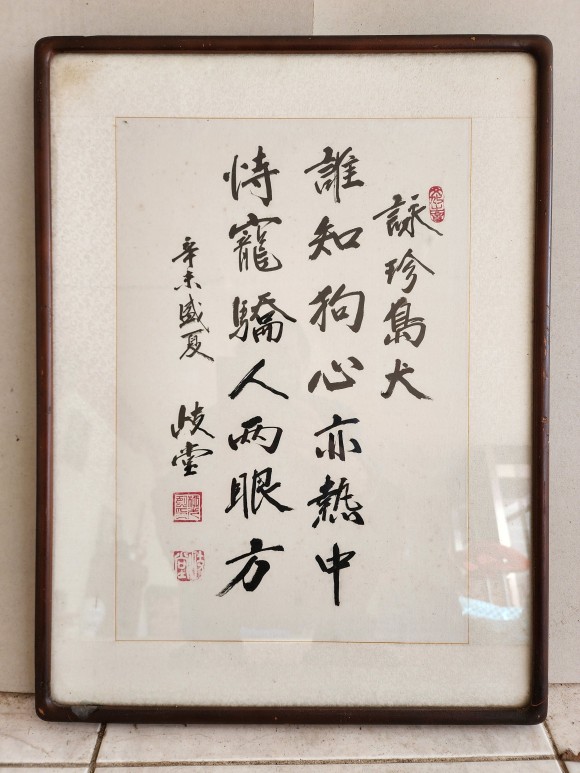 詠珍島犬
誰知狗心亦熱中
恃寵驕人両眼方
辛未盛夏
歧堂